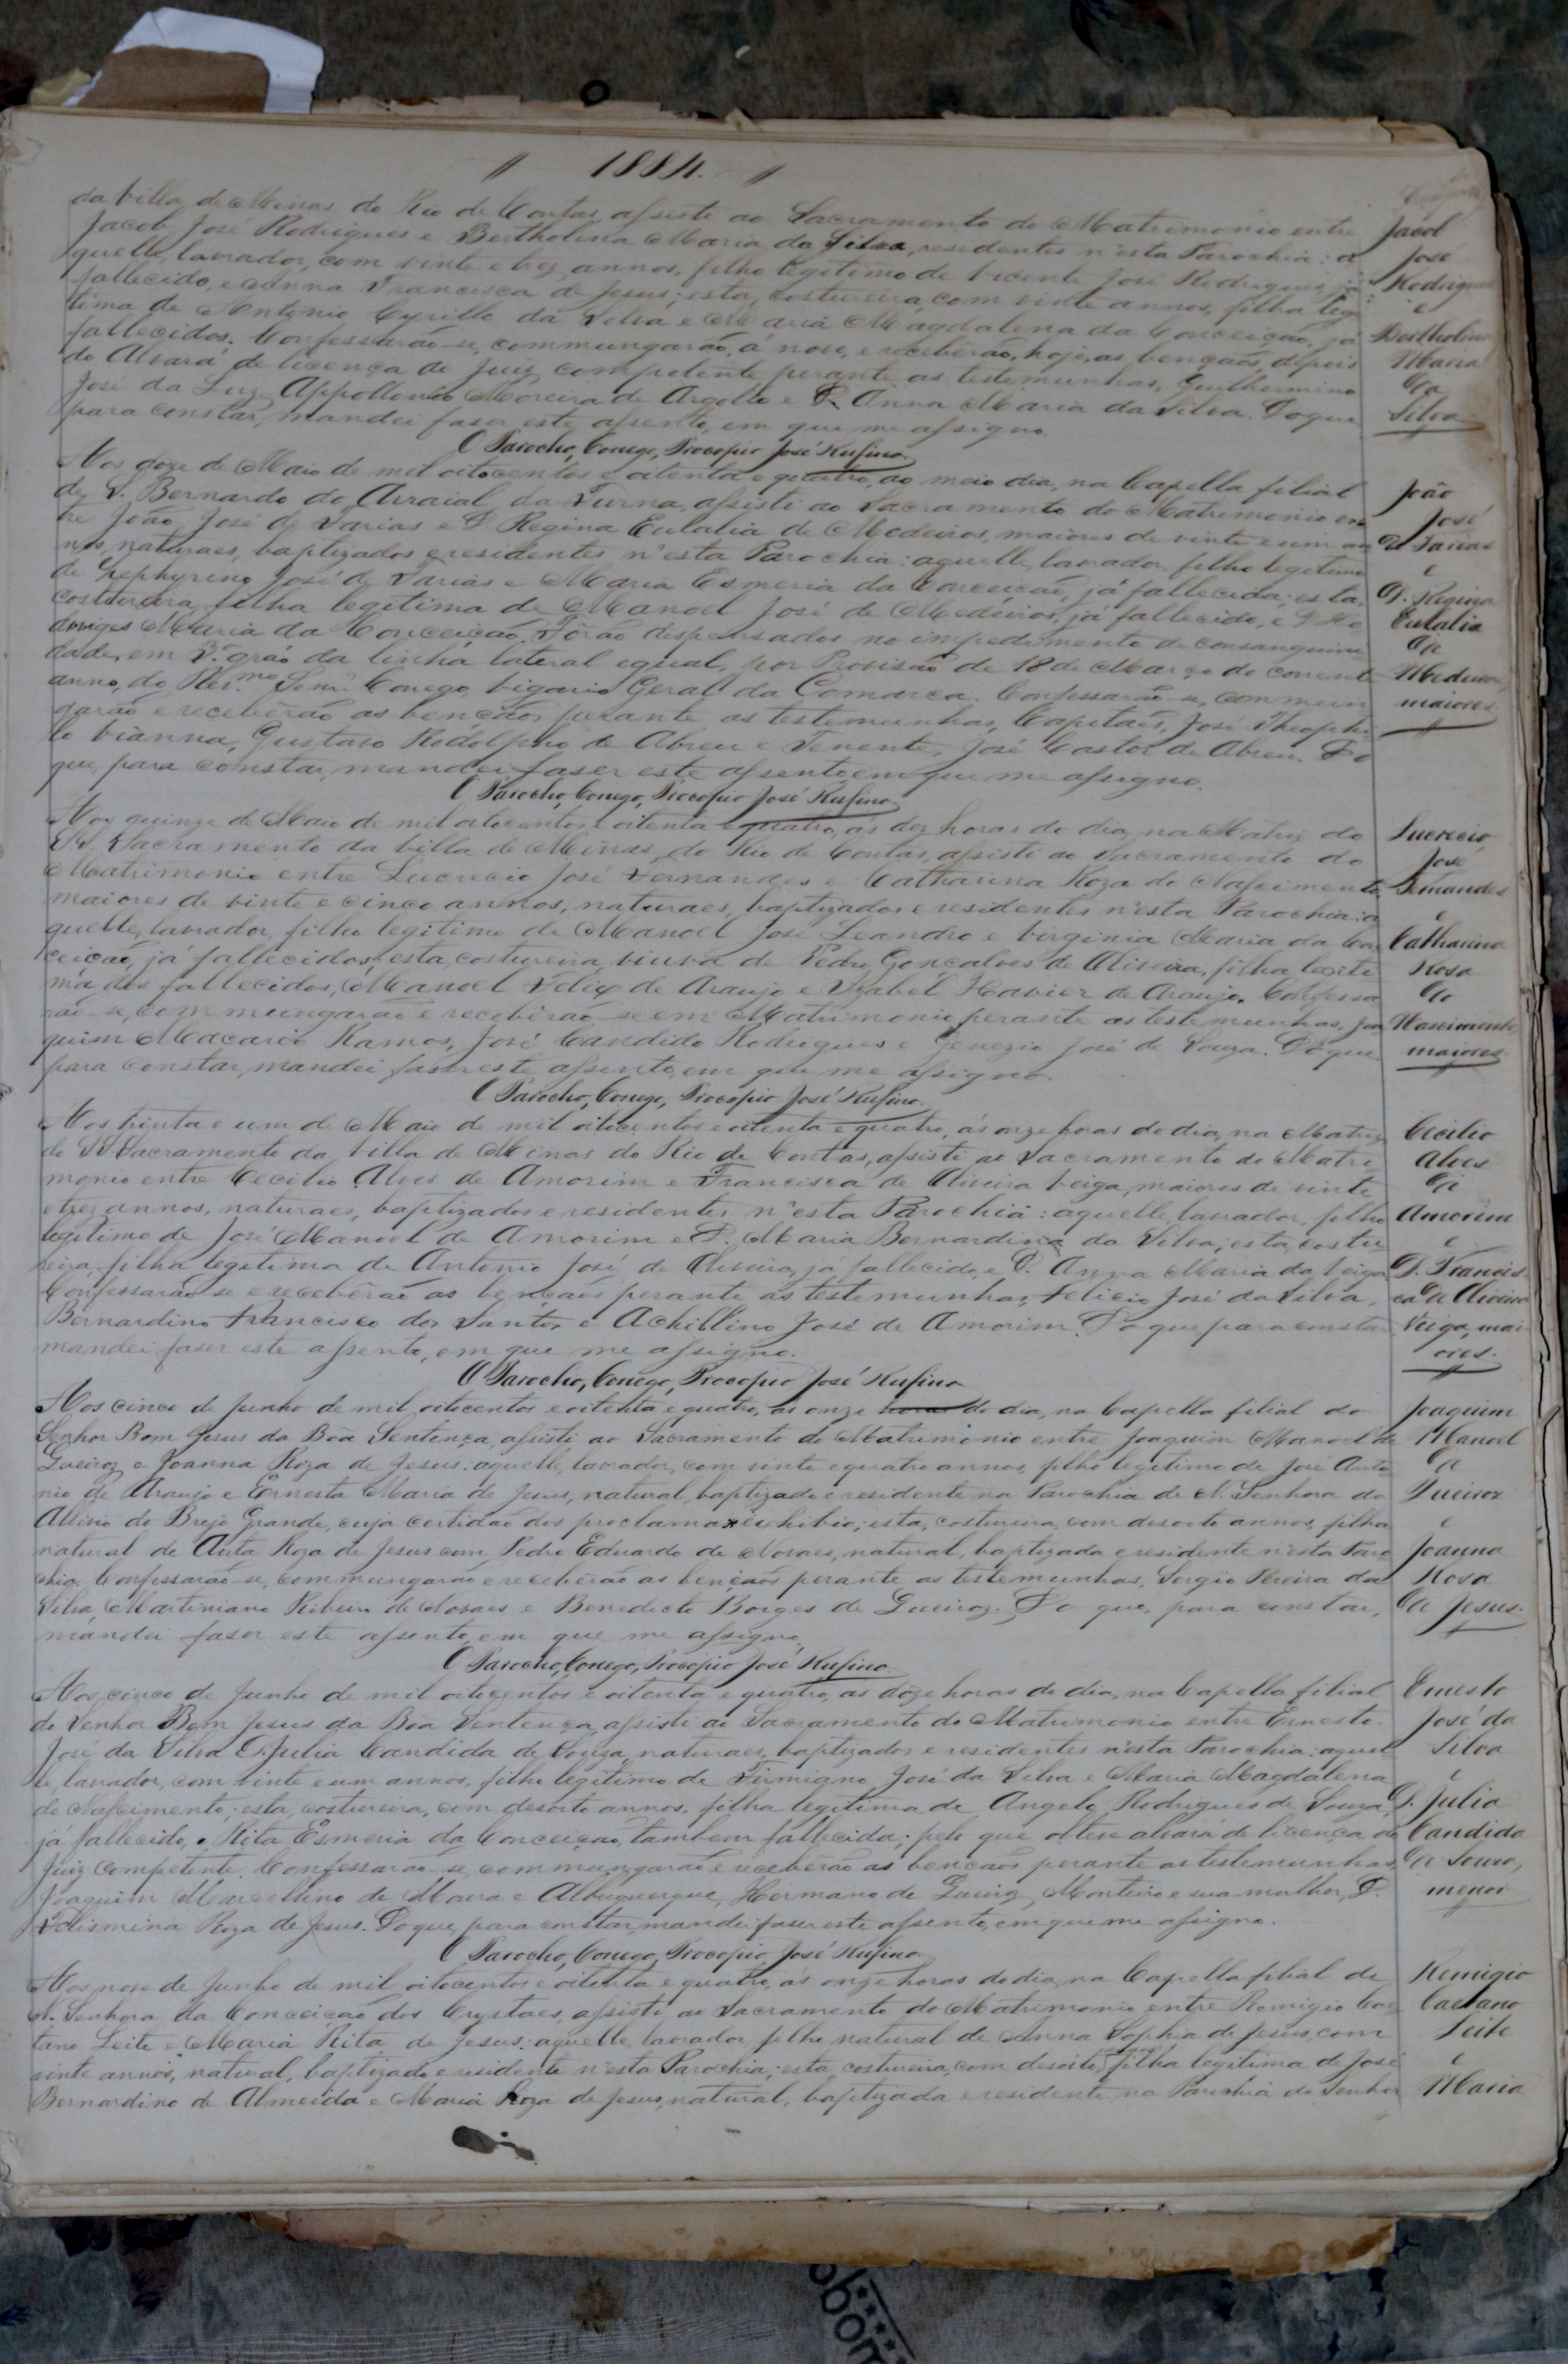 1884.
da Villa de Minas do Rio de Contas, assisti ao Sacramento do Matrimonio entre
Jacob José Rodrigues e Bertholina Maria da Silva, residentes n'esta Parochia: a
quelle, lavrador, com vinte e trez annos, filho legitimo de Vicente José Rodrigues, já
fallecido, e Anna Francisca de Jesus; esta, costureira, com vinte annos, filha legi
tima de Antonio Cyrillo da Silva e Maria Magdalena da Conceição, já
fallecidos. Confessarão-se, commungarão, á nove, e receberão, hoje, as bençaõs, depois
do Alvará de licença do Juiz competente perante as testemunhas, Guilhermino
José da Luz, Appollonio Moreira de Argollo e D. Anna Maria da Silva. Do que
para constar, mandei faser este assento, em que me assigno.
O Parocho, Conego, Procopio José Rufino.
Jacob
José
Rodrigues
e
Bertholina
Maria
da
Silva
Aos doze de Maio de mil oitocentos e oitenta e quatro, ao meio dia, na Capella filial
de S. Bernardo do Arraial da Furna, assisti ao Sacramento do Matrimonio en
tre João José de Farias e D. Regina Eulalia de Medeiros, maiores de vinte e um an
nos, naturaes, baptizados e residentes n'esta Parochia: aquelle, lavrador, filho legitimo
de Zephyrino José de Farias e Maria Esmeria da Conceição, já fallecida; esta,
costureira, filha legitima de Manoel José de Medeiros, já fallecido, e D.
Maria da Conceição. Fôrão dispensados no impedimento de consanguini
dade, em 3.º gráo da linha lateral egual, por Provisão de 18 de Março do corrente
anno, do Revmo. Senr. Conego Vigario Geral da Comarca. Confessarão-se, commun
garão e receberão as bençãos perante as testemunhas, Capitaẽs, José Theophi
lo Vianna, Gustavo Rodolpho de Abreu e Tenente, José Castor de Abreu. Do
que, para constar, mandei faser este assento, em que me assigno.
O Parocho, Conego, Procopio José Rufino.
João
José
de Farias
e
D. Regina
Eulalia
de
Medeiros,
maiores.
Aos quinze de Maio de mil oitocentos e oitenta e quatro, ás dez horas do dia, na Matriz do
SS. Sacramento da Villa de Minas do Rio de Contas, assisti ao Sacramento do
Matrimonio entre Lucrecio José Fernandes e Catharina Roza do Nascimento,
maiores de vinte e cinco annos, naturaes, baptizados e residentes n'esta Parochia: a
quelle, lavrador, filho legitimo de Manoel José Leandro e Virginia Maria da Con
ceição, já fallecidos; esta, costureira, viuva de Pedro Gonçalves de Oliveira, filha legiti
ma dos fallecidos, Manoel Felix de Araujo e Izabel Xavier de Araujo. Confessa
rão-se, commungarão e receberão-se em Matrimonio perante as testemunhas, Joa
quim Macario Ramos, José Candido Rodrigues e Genezio José de Souza. Do que,
para constar, mandei faser este assento, em que me assigno.
O Parocho, Conego, Procopio José Rufino.
Lucrecio
José
Fernandes
e
Catharina
Rosa
do
Nascimento
maiores.
Aos trinta e um de Maio de mil oitocentos e oitenta e quatro, ás onze horas do dia, na Matriz
do SS Sacramento da Villa de Minas do Rio de Contas, assisti ao Sacramento do Matri
monio entre Cecilio Alves de Amorim e Francisca de Oliveira Veiga, maiores de vinte
e trez annos, naturaes, baptizados e residentes n'esta Parochia: aquelle, lavrador, filho
legitimo de José Manoel de Amorim e D. Maria Bernardina da Silva; esta, costu
reira, filha legitima de Antonio José de Oliveira, já fallecido, e D. Anna Maria da Veiga.
Confessarão-se e receberão as bençaõs perante as testemunhas, Felicio José da Silva,
Bernardino Francisco dos Santos e Achillino José de Amorim. Do que para constar
mandei faser este assento, em que me assigno.
O Parocho, Conego, Procopio José Rufino
Cecilio
Alves
de
Amorim
e
D. Francis
ca de Oliveira
Veiga, mai
ores.
Aos cinco de Junho de mil oitocentos e oitenta e quatro, ás onze horas do dia, na Capella filial do
Senhor Bom Jesus da Bôa Sentença, assisti ao Sacramento do Matrimonio entre Joaquim Manoel de
Queiroz e Joanna Roza de Jesus: aquelle, lavrador, com vinte e quatro annos, filho legitimo de José Anto
nio de Araujo e Ernesta Maria de Jesus, natural, baptizado e residente na Parochia de N. Senhora do
Allivio do Brejo Grande, cuja certidão dos proclamas exhibio; esta, costureira, com desoito annos, filha
natural de Auta Roza de Jesus com Pedro Eduardo de Novaes, natural, baptizada e residente n'esta Paro
chia. Confessarão-se, commungarão e receberão as bençãos perante as testemunhas, Sergio Pereira da
Silva, Martiniano Ribeiro de Novaes e Benedicto Borges de Queiroz. Do que, para constar,
mandei faser este assento, em que me assigno.
O Parocho, Conego, Procopio José Rufino.
Joaquim
Manoel
de
Queiroz
e
Joanna
Rosa
de Jesus.
Aos cinco de Junho de mil oitocentos e oitenta e quatro, as doze horas do dia, na Capella filial
do Senhor Bom Jesus da Bôa Sentença, assisti ao Sacramento do Matrimonio entre Ernesto
José da Silva e D. Julia Candida de Souza, naturaes, baptizados e residentes n'esta Parochia: aquel
le, lavrador, com vinte e um annos, filho legitimo de Firmiano José da Silva e Maria Magdalena
do Nascimento; esta, costureira, com desoito annos, filha legitima de Angelo Rodrigues de Souza,
já fallecido, e Rita Esmeria da Conceição, tambem fallecida; pelo que obteve alvará de licença do
Juiz competente. Confessarão-se, commungarão e receberão as bençaõs perante as testemunhas,
Joaquim Marcellino de Moura e Albuquerque, Hermano de Queiroz Monteiro e sua mulher, D.
Felismina Roza de Jesus. Do que, para constar, mandei faser este assento, em que me assigno.
O Parocho, Conego, Procopio José Rufino
Ernesto
José da
Silva
e
D. Julia
Candida
de Souza,
menor
Aos nove de Junho de mil oitocentos e oitenta e quatro, ás onze horas do dia, na Capella filial de
N. Senhora da Conceição dos Crystaes, assisti ao Sacramento do Matrimonio entre Remigio Cae
tano Leite e Maria Rita de Jesus: aquelle, lavrador, filho natural de Anna Sophia de Jesus, com
vinte annos, natural, baptizado e residente n'esta Parochia; esta, costureira, com desoito, filha legitima de José
Bernardino de Almeida e Maria Roza de Jesus, natural, baptizada e residente na Parochia do Senhor
Remigio
Caetano
Leite
e
Maria